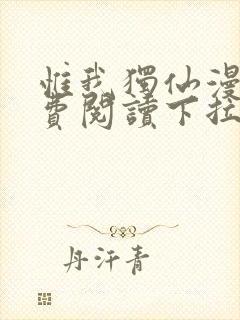 惟我獨仙漫
費閱讀下拉
丹汗青